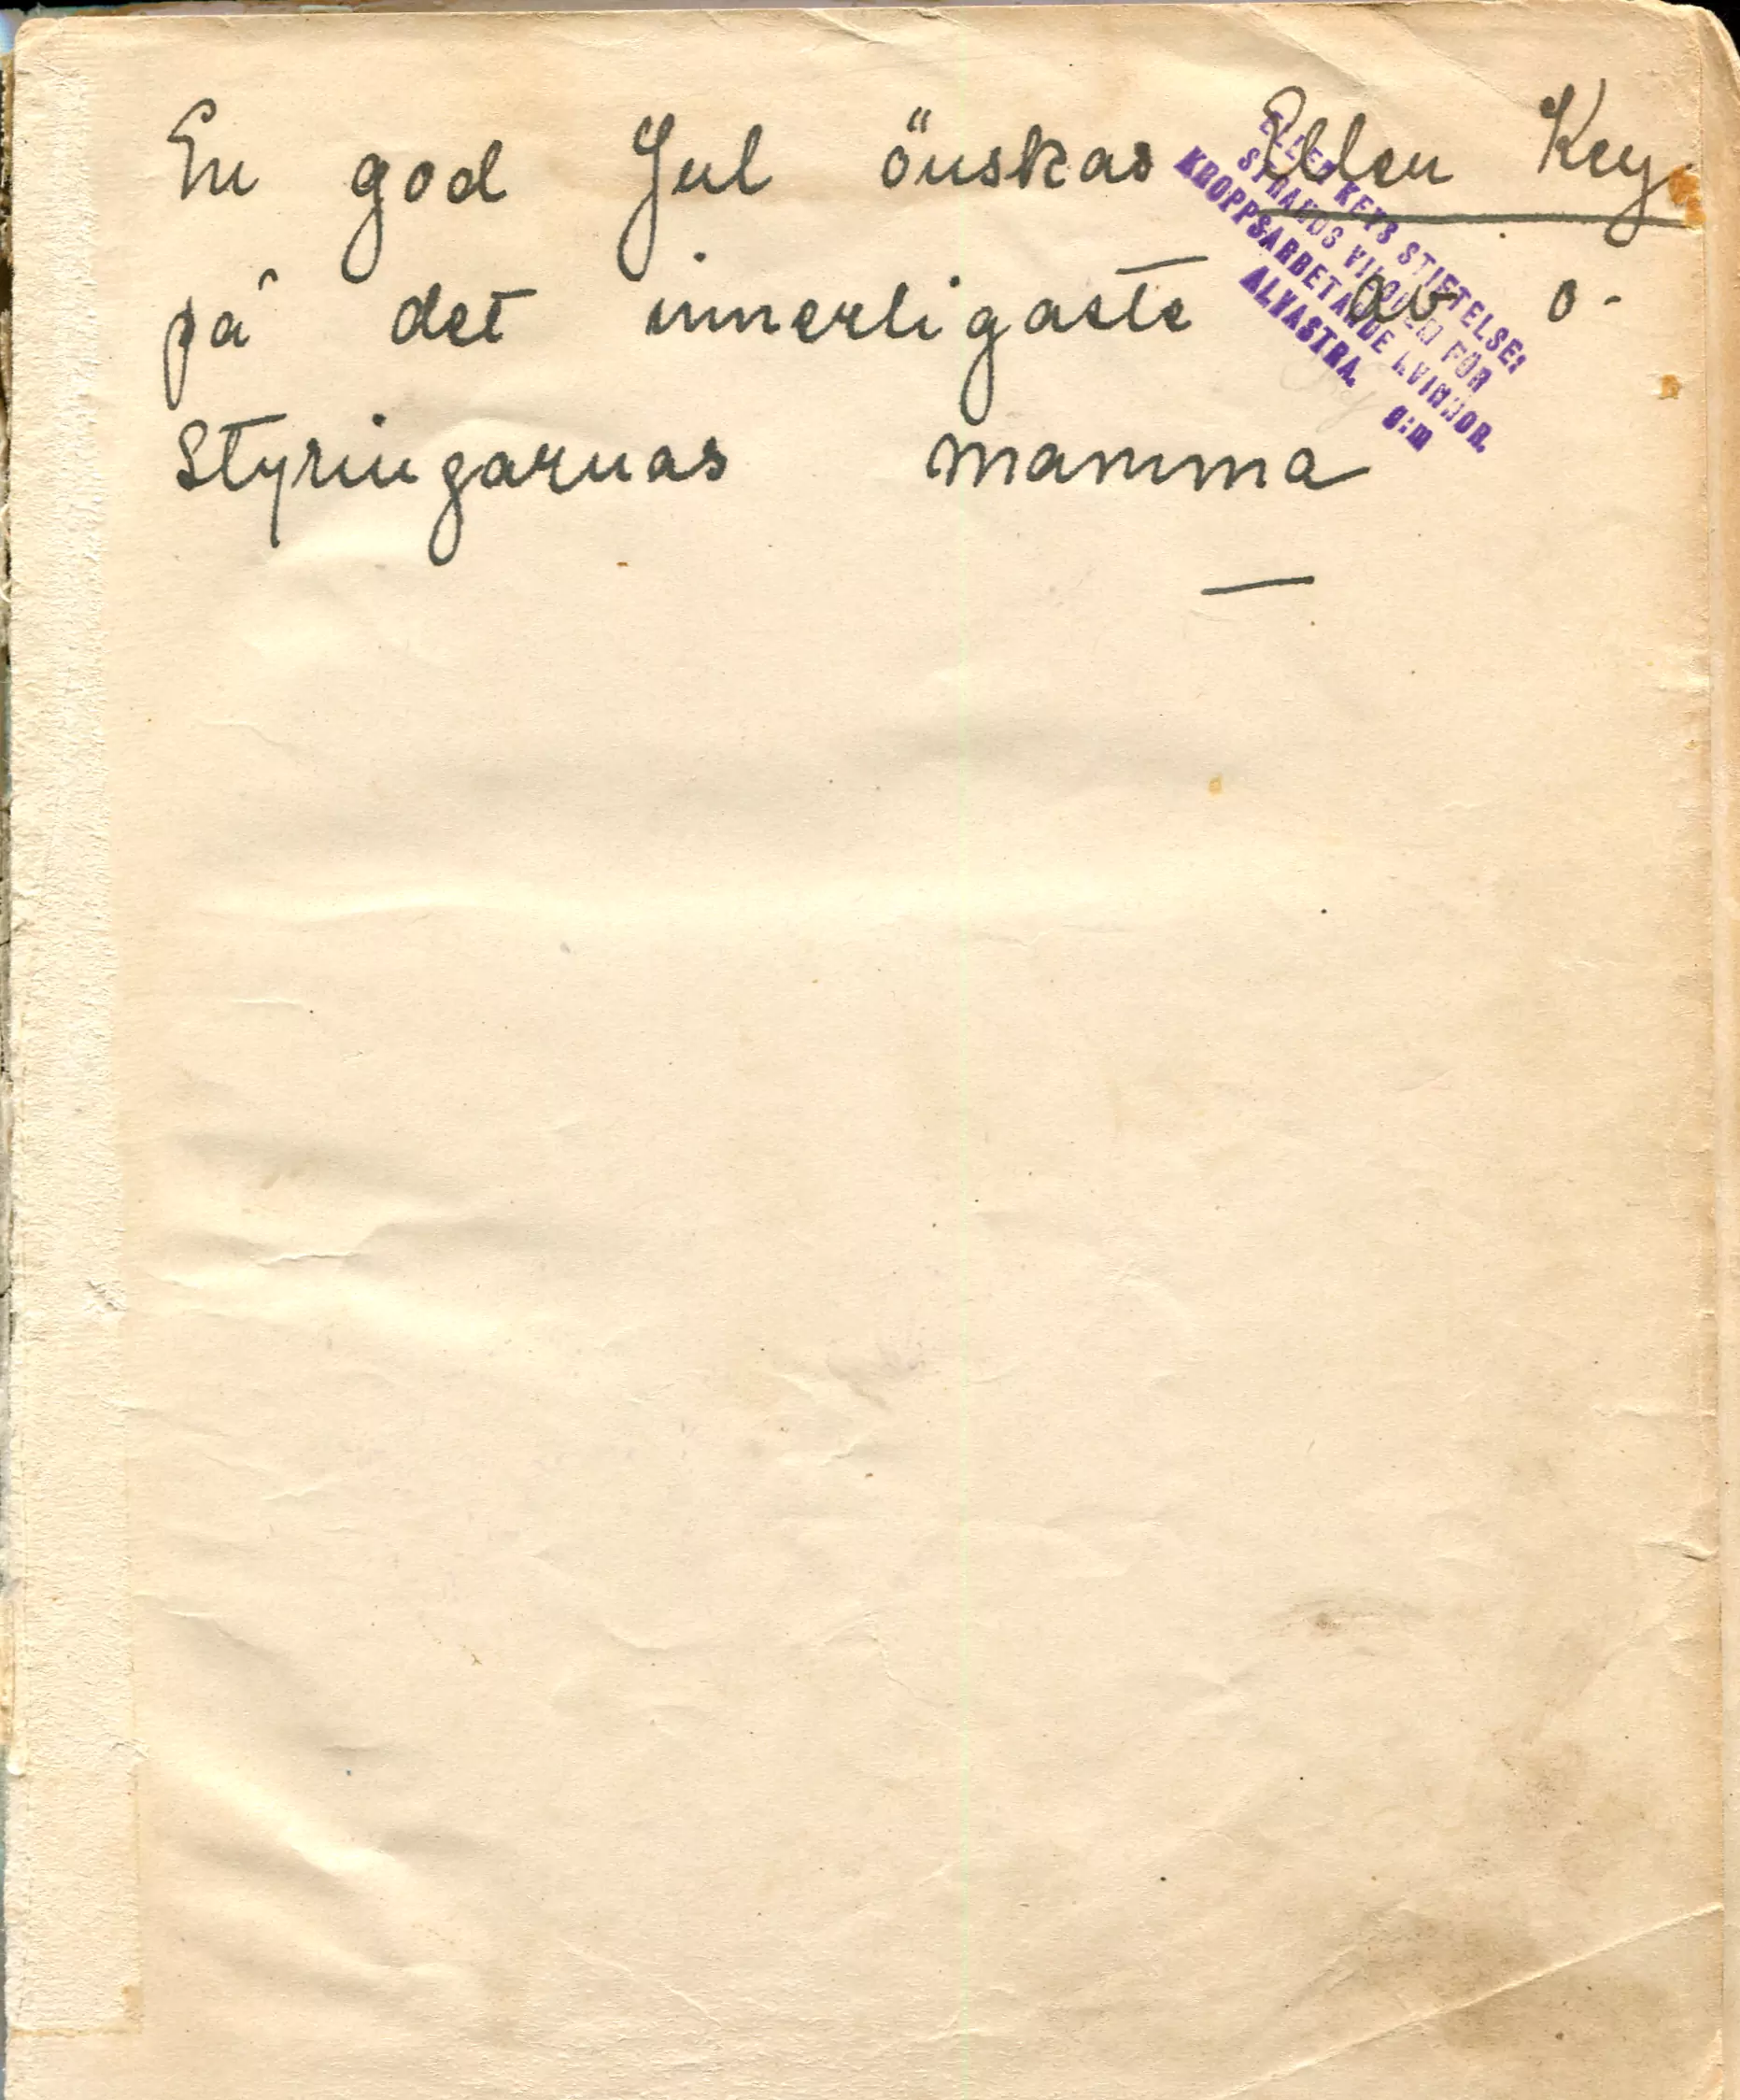 En god Jul önskas Ellen Key
på det innerligaste av o-
styringarnas mamma
—
ELLEN KEYS STIFTELSE:
STRANDS VILOHEM FÖR
KROPPSARBETANDE KVINNOR.
ALVASTRA. g:m